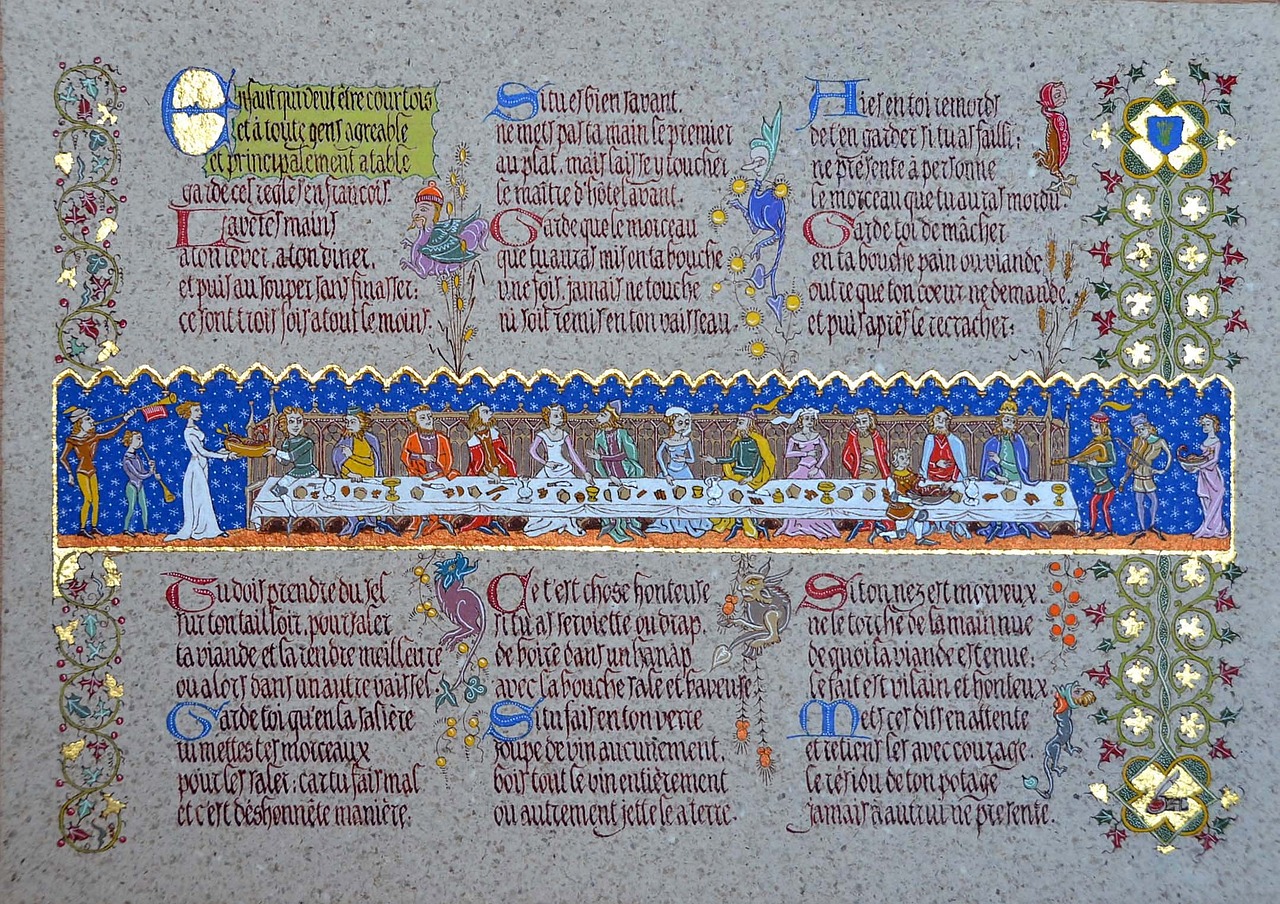 Enfant qui veut être courtois
et à toute gens agreable
et principalement a table
garde ces regles en francois.
Lave tes mains
a ton lever, a ton diner,
et puis au souper sans finasser:
ce sont trois fois a tout le moins.
Si tu es bien savant,
ne mets pas ta main le premier
au plat, mais laisse y toucher
le maître d'hôtel avant.
Garde que le morceau
que tu auras mis en ta bouche
une fois, jamais ne touche
ni soit remis en ton vaisseau.
Aies en toi remords
de t'en garder si tu as failli;
ne présente à personne
le morceau que tu auras mordu
Garde toi de mâcher
en ta bouche pain ou viande
outre que ton coeur ne demande,
et puis après le recracher:
Tu dois prendre du sel
sur ton tailloir, pour saler
ta viande et la rendre meilleure
ou alors dans un autre vaissel.
Garde toi, qu'en la salière
tu mettes tes morceaux
pour les saler; car tu fais mal
et c'est déshonnête manière:
Ce t'est chose honteuse
si tu as serviette ou drap,
de boire dans un hanap
avec la bouche sale et baveuse
Si tu fais en ton verre
soupe de vin aucunement,
bois tout le vin entièrement
ou autrement jette le a terre.
Si ton nez est morveux
ne le torche de la main nue
de quoi ta viande est tenue:
le fait est vilain et honteux
Mets ces dits en attente
et retiens les avec courage
le résidu de ton potage
jamais à autrui ne présente.